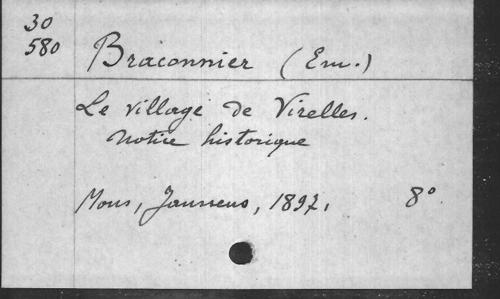 30
580
Braconnier (Em.)
Le village de Virelles.
Notice historique
Mons, Janssens, 1897, 8°.